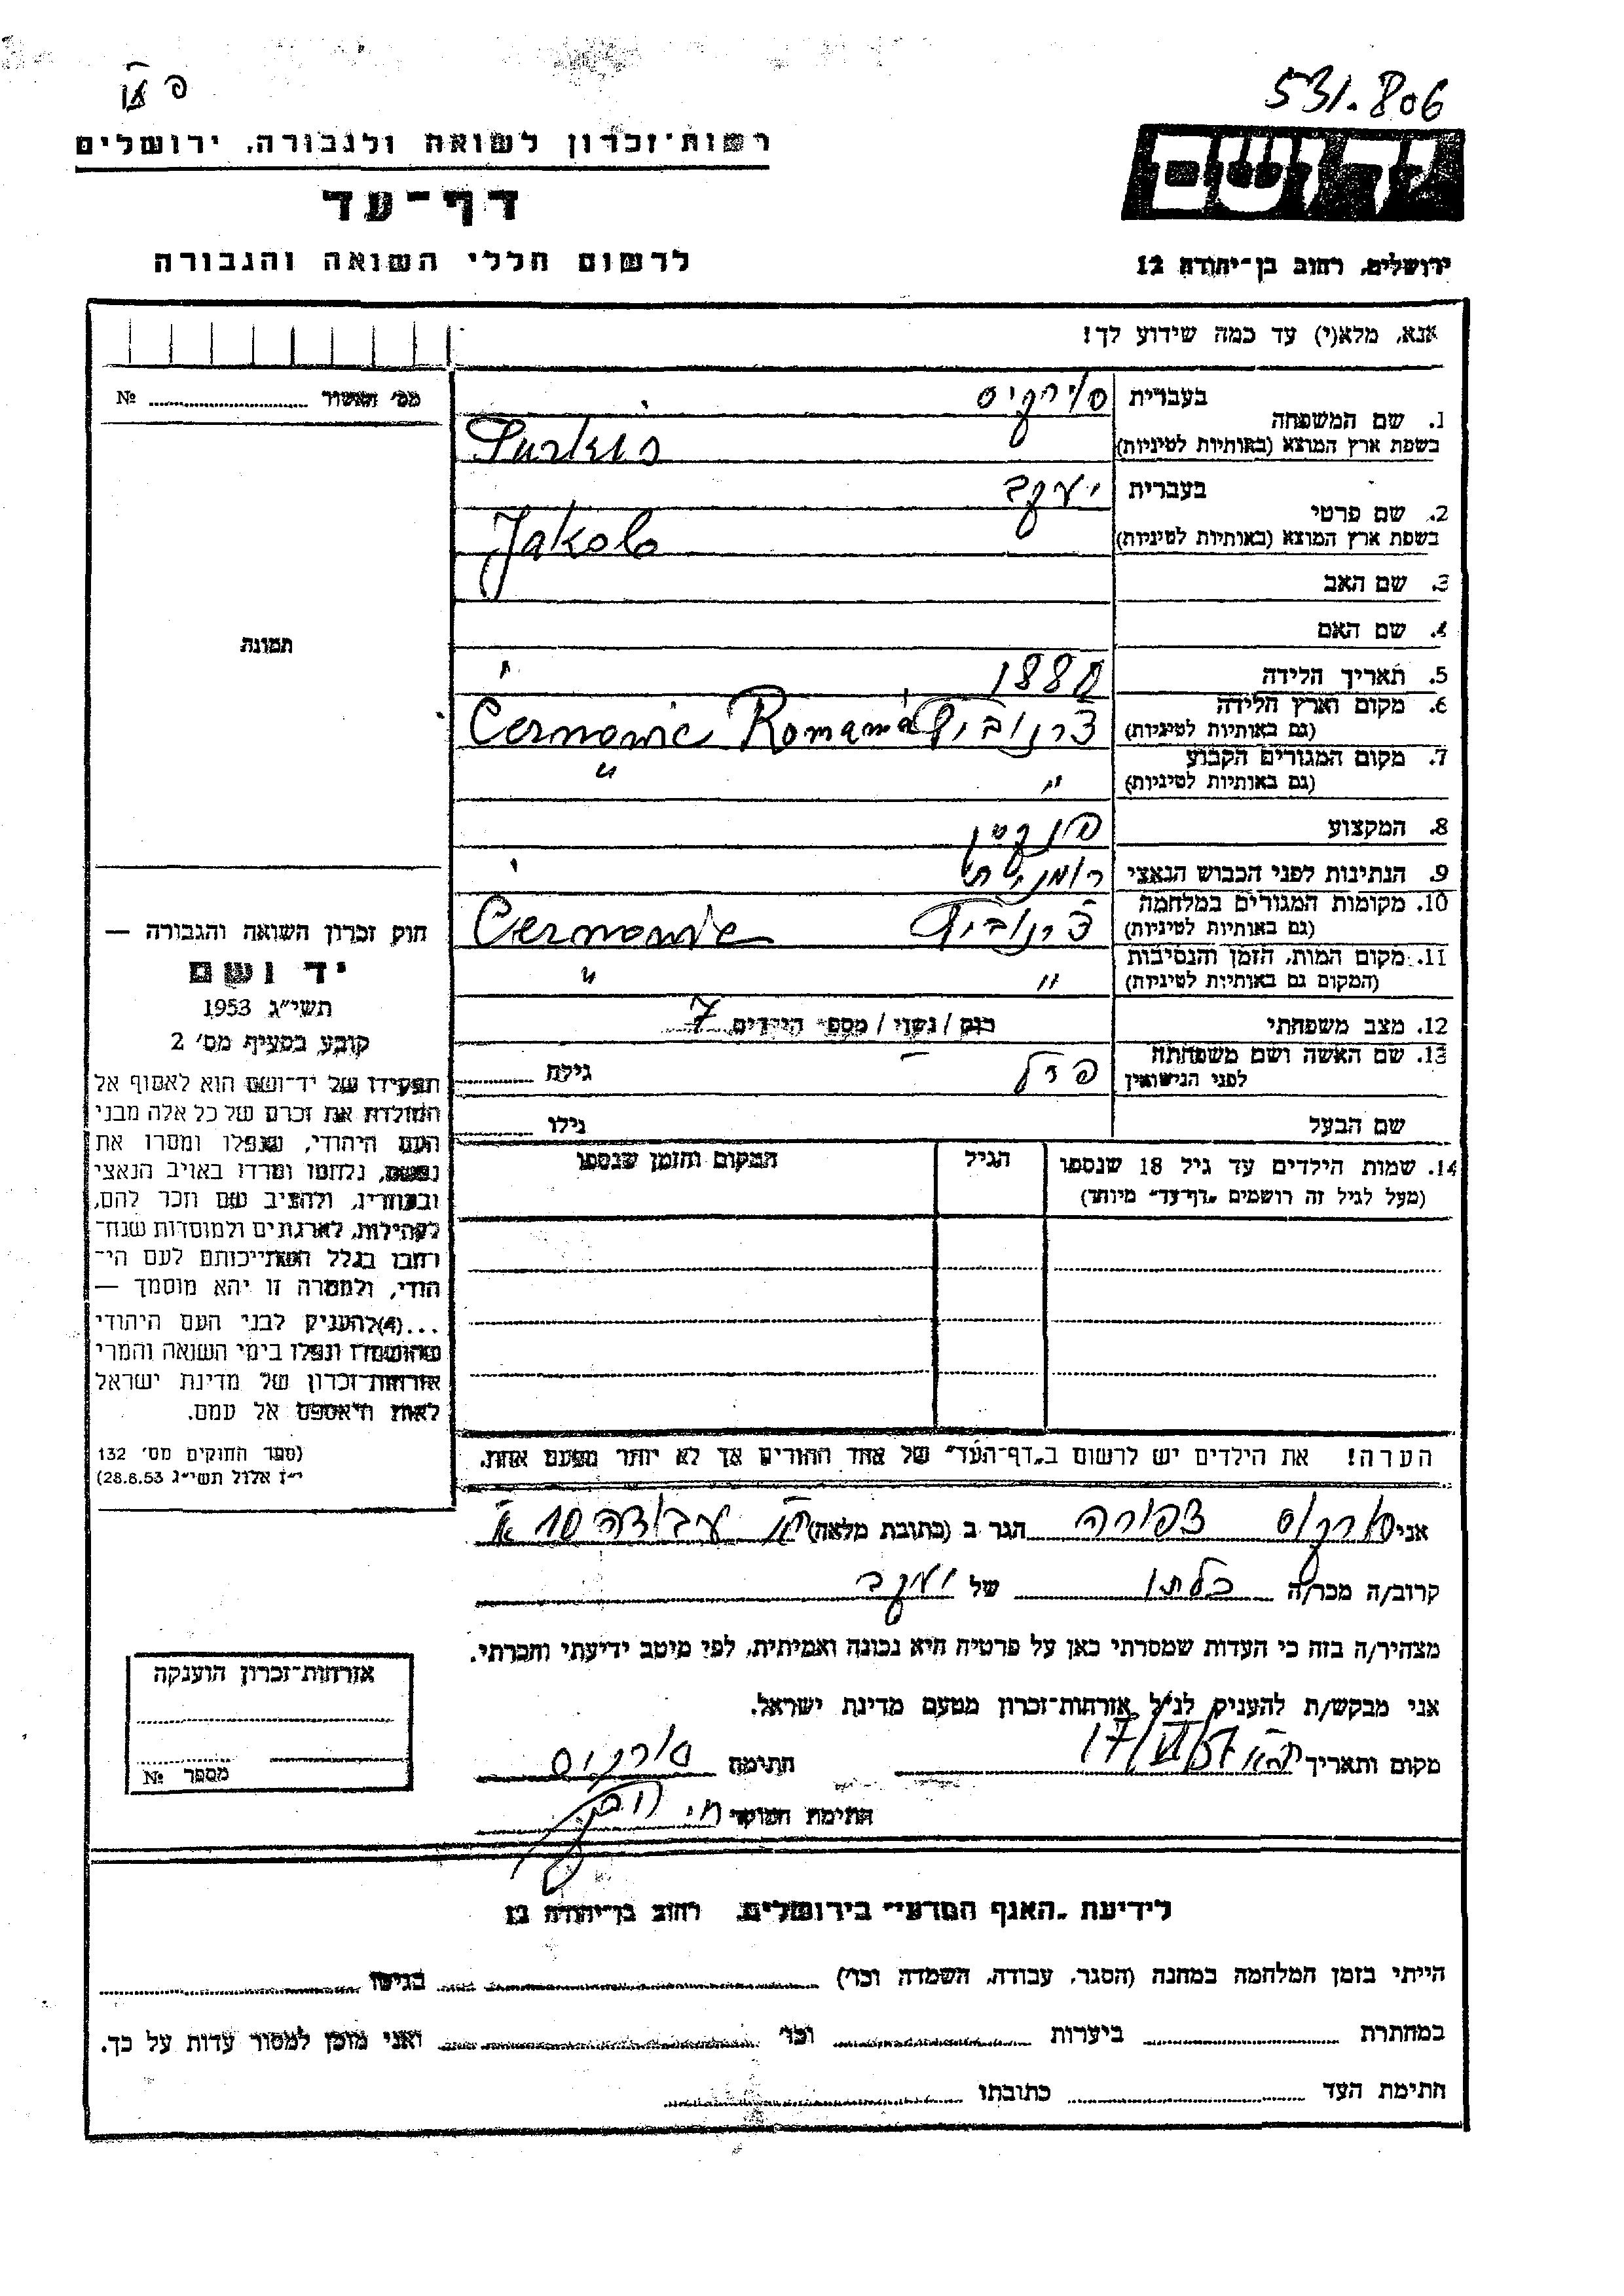 פ
531.806
רשות־זכרון לשואה ולגבורה, ירושלים
דף־עד
לרשום חללי השואה והגבורה
ירושלים, רחוב בן־יהודה 12
אנא, מלא(י) עד כמה שידוע לך!
מס׳ האשור № ..........
1. שם המשפחה
בעברית סירקיס
בשפת ארץ המוצא (באותיות לטיניות) Surkis
2. שם פרטי
בעברית יעקב
בשפת ארץ המוצא (באותיות לטיניות) Jakob
3. שם האב
4. שם האם
5. תאריך הלידה 1880
6. מקום וארץ הלידה
(גם באותיות לטיניות) צרנוביץ Cernovic Romania
7. מקום המגורים הקבוע
(גם באותיות לטיניות) " "
8. המקצוע
9. הנתינות לפני הכבוש הנאצי רומנית
10. מקומות המגורים במלחמה
(גם באותיות לטיניות) צרנוביץ Cernovic
11. מקום המות, הזמן והנסיבות
(המקום גם באותיות לטיניות) " "
12. מצב משפחתי רוק / נשוי / מספר הילדים 7
13. שם האשה ושם משפחתה
לפני הנישואין פרל גילה ..........
שם הבעל גילו ..........
14. שמות הילדים עד גיל 18 שנספו
(מעל לגיל זה רושמים „דף־עד״ מיוחד)
הגיל
המקום והזמן שנספו
תמונה
חוק זכרון השואה והגבורה —
יד ושם
תשי״ג 1953
קובע בסעיף מס׳ 2
תפקידו של יד־ושם הוא לאסוף אל
המולדת את זכרם של כל אלה מבני
העם היהודי, שנפלו ומסרו את
נפשם, נלחמו ומרדו באויב הנאצי
ובעוזריו, ולהציב שם וזכר להם,
לקהילות, לארגונים ולמוסדות שנח־
רבו בגלל השתייכותם לעם הי־
הודי, ולמטרה זו יהא מוסמך —
...(4)להעניק לבני העם היהודי
שהושמדו ונפלו בימי השואה והמרי
אזרחות־זכרון של מדינת ישראל
לאות היאספם אל עמם.
(ספר החוקים מס׳ 132
י״ז אלול תשי״ג 28.8.53)
הערה! את הילדים יש לרשום ב„דף־העד״ של אחד ההורים אך לא יותר מפעם אחת.
אני סורקיס צפורה הגר ב (כתובת מלאה) ת״א עבודה 10 א
קרוב/ה מכר/ה כלתו של יעקב
מצהיר/ה בזה כי העדות שמסרתי כאן על פרטיה היא נכונה ואמיתית, לפי מיטב ידיעתי והכרתי.
אני מבקש/ת להעניק לנ״ל אזרחות־זכרון מטעם מדינת ישראל.
מקום ותאריך ת״א 17/VI/57 חתימה סורקיס
חתימת הפוקד
אזרחות־זכרון הוענקה
מספר №
לידיעת „האגף המדעי״ בירושלים, רחוב בן־יהודה 12
הייתי בזמן המלחמה במחנה (הסגר, עבודה, השמדה וכו׳) .......... בגיטו ..........
במחתרת .......... ביערות .......... וכו׳ .......... ואני מוכן למסור עדות על כך.
חתימת העד .......... כתובתו ..........